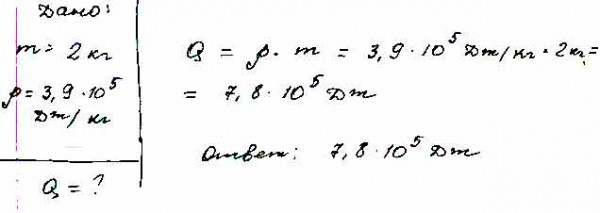 Дано:
m = 2 кг
ρ = 3,9 · 10⁵
Дж/кг
Q = ?
Q = ρ · m = 3,9 · 10⁵ Дж/кг · 2 кг =
= 7,8 · 10⁵ Дж
Ответ: 7,8 · 10⁵ Дж